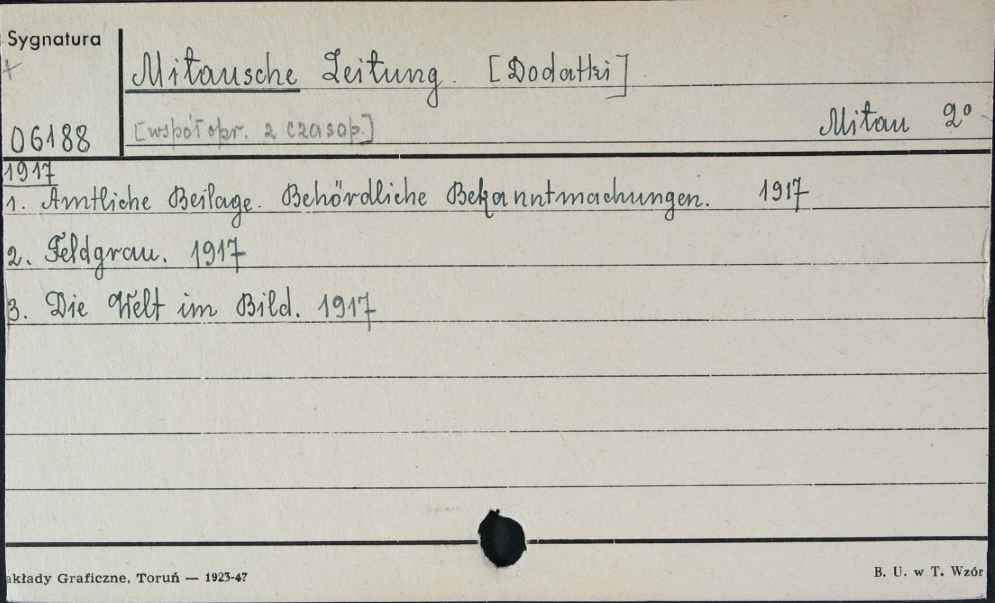 Sygnatura
+
Mitausche Zeitung. [Dodatki]
06188
[współopr. z czasop.]
Mitau 2°
1917
1. Amtliche Beilage. Behördliche Bekanntmachungen. 1917
2. Feldgrau. 1917
3. Die Welt im Bild. 1917
akłady Graficzne, Toruń — 1923-47
B. U. w T. Wzór